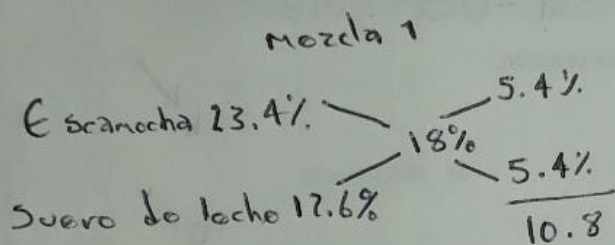 Mozcla 1
Escamocha 23.4%
18%
5.4%
Suero de leche 12.6%
5.4%
10.8